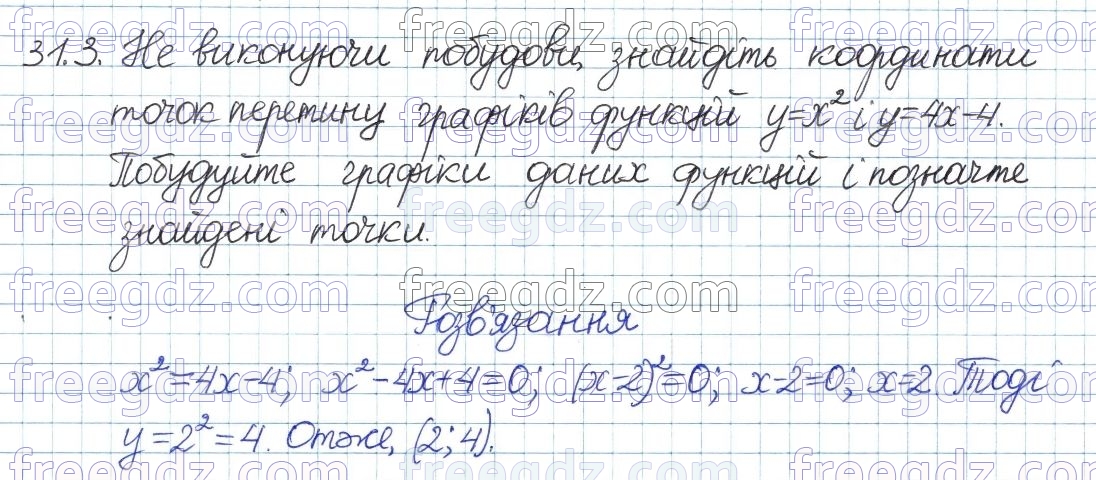 31.3. Не виконуючи побудови, знайдіть координати
точок перетину графіків функцій y=x² і y=4x-4.
Побудуйте графіки даних функцій і позначте
знайдені точки.
Розв'язання
x²=4x-4; x²-4x+4=0; (x-2)²=0; x-2=0; x=2. Тоді
y=2²=4. Отже, (2;4).